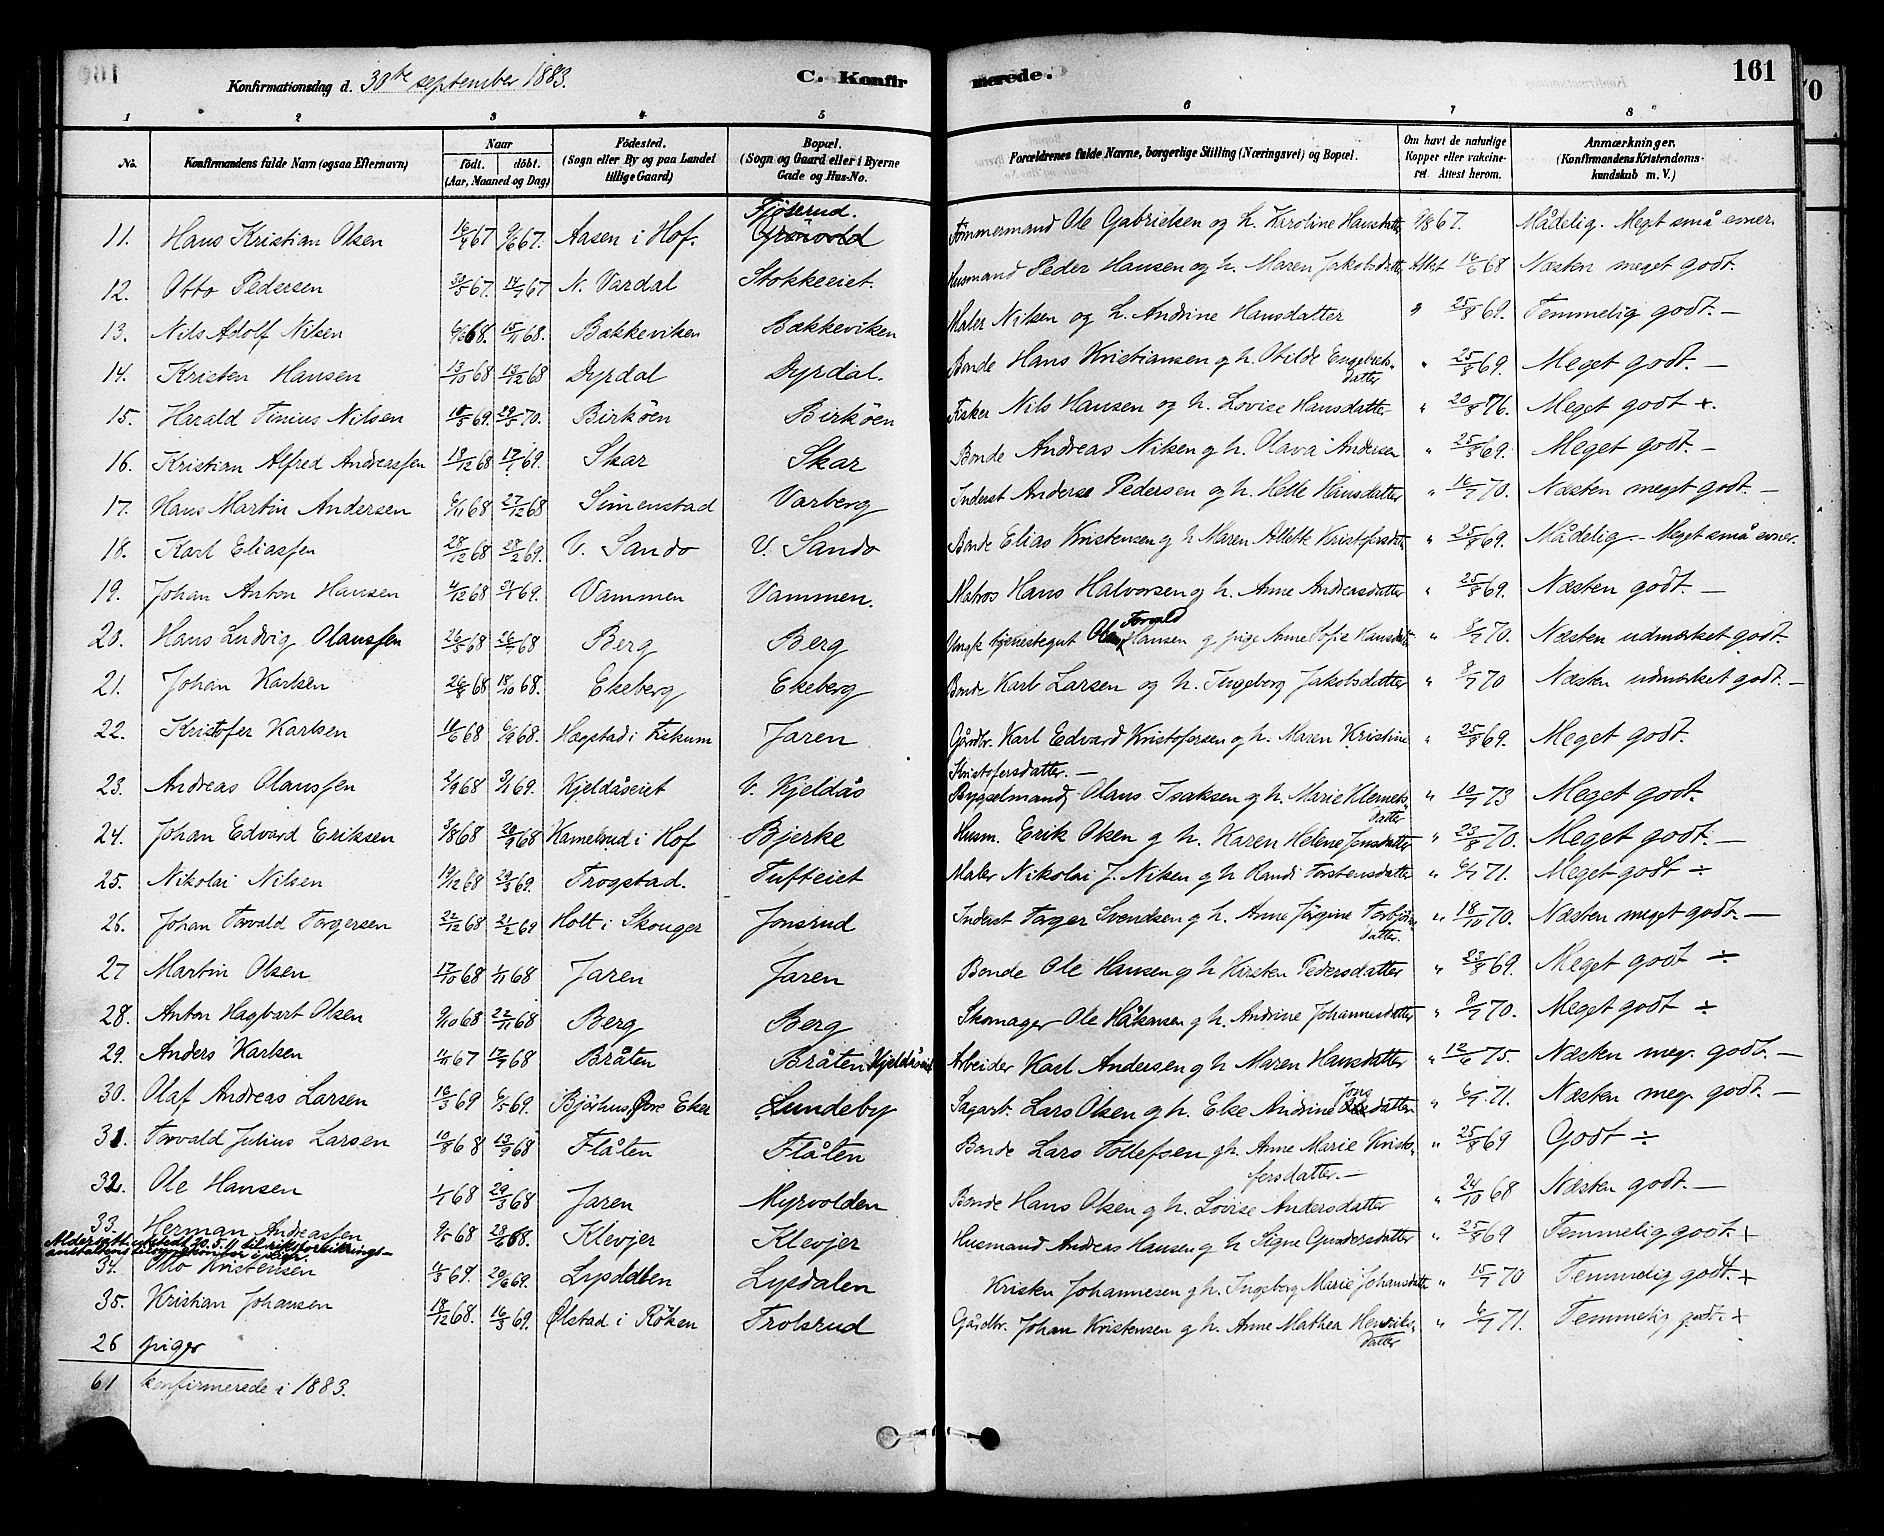 161
Konfirmationsdag d. 30te september 1883. C. Konfirmerede.
1 2 3 4 5 6 7 8
No. Konfirmandens fulde Navn (ogsaa Efternavn) Naar født. døbt. (Aar, Maaned og Dag) Fødested. (Sogn eller By og paa Landet tillige Gaard) Bopæl. (Sogn og Gaard eller i Byerne Gade og Hus-No. Forældrenes fulde Navne, borgerlige Stilling (Næringsvei) og Bopæl. Om havt de naturlige Kopper eller vakcineret. Attest herom. Anmærkninger. (Konfirmandens Kristendomskundskab m. V.)
11. Hans Kristian Olsen 16/4 67 9/6 67. Aasen i Hof. Fjöserud. Grönvold Tömmermand Ole Gabrielsen og h. Karoline Hansdatter 67. Mådelig. Meget små evner.
12. Otto Pedersen 30/5 67. 14/7 67 N. Vardal Stokkeeiet. Husmand Peder Hansen og h. Maren Jakobsdatter Attst 14/6 68 Næsten meget godt.
13. Nils Adolf Nilsen 68. 15/11 68. Bakkeviken Bakkeviken Maler Nilsen og h. Andrine Hansdatter " 25/8 69. Temmelig godt. —
14. Kristen Hansen 13/10 68 13/12 68 Dyrdal Dyrdal. Bonde Hans Kristiansen og h. Otilde Engebretsdatter " 25/8 69. Meget godt. —
15. Harald Tinius Nilsen 69. 29/5 70. Birköen Birköen Fisker Nils Hansen og h. Lovise Hansdatter " 20/8 76. Meget godt +.
16. Kristian Alfred Anderssen 13/12 68 17/1 69. Skar Skar Bonde Andreas Nilsen og h. Olava Andersen " 25/8 69. Meget godt. —
17. Hans Martin Andersen 6/11 68 27/12 68 Simenstad Varberg Inderst Anderse Pedersen og h. Helle Hansdatter " 16/7 70. Næsten meget godt. —
18. Karl Eliassen 28/12 68 28/2 69. V. Sando V. Sando Bonde Elias Kristensen og h Maren Alette Kristofersdatter " 25/8 69. Mådelig - Meget små evner.
19. Johan Anton Hansen 4/12 68 24/1 69. Vammen Vammen. Matros Hans Halvorsen og h. Anne Andreasdatter " 25/8 69. Næsten godt. —
20. Hans Ludvig Olaussen 26/5 68 26/7 68 Berg Berg Ungk tjenestegut Olaus Torvald Hansen og pige Anne Sofie Hansdatter " 8/7 70. Næsten udmærket godt.
21. Johan Karlsen 26/8 68 18/10 68. Ekeberg Ekeberg Bonde Karl Larsen og h. Ingeborg Jakobsdatter " 8/7 70 Næsten udmærket godt. —
22. Kristofer Karlsen 68 6/9 68. Hægstad i Fiskum Jaren Gårdbr. Karl Edvard Kristofersen og h. Maren Kristine Kristofersdatter. — " 25/8 69. Meget godt.
23. Andreas Olaussen 2/9 68 3/1 69. Kjeldåseiet V. Kjeldås Bygselmand Olaus Isaksen og h. Marie Klemetsdatter " 10/7 73 Meget godt.
24. Johan Edvard Eriksen 3/8 68 20/9 68 Hamelrud i Hof Bjerke Husm. Erik Olsen og h. Karen Helene Jensdatter " 23/8 70. Meget godt. —
25. Nikolai Nilsen 19/12 68 29/3 69. Trogstad. Tufteiet Maler Nikolai J. Nilsen og h Randi Torstensdatter " 6/7 71. Meget godt ÷
26. Johan Torvald Torgersen 22/12 68 21/2 69 Holt i Skouger Jonsrud Inderst Torger Svendsen og h. Anne Jörgine Torbjörnsdatter. " 18/10 70. Næsten meget godt. —
27 Martin Olsen 17/10 68 1/11 68 Jaren Jaren Bonde Ole Hansen og h Kirsten Pedersdatter " 25/8 69. Meget godt ÷
28. Anton Hagbart Olsen 9/10 68 22/11 68 Berg Berg Skomager Ole Håkansen og h. Andrine Johannesdatter " 8/7 70. Meget godt ÷
29. Anders Karlsen 67 68 Bråten Bråten Kjeldåseiet Arbeider Karl Andersen og h Maren Hansdatter " 12/6 75. Næsten meg. godt. —
30. Olaf Andreas Larsen 16/3 69 6/5 69. Bjørhus, Øvre Eker Lundeby Sagarb. Lars Olsen og h. Else Andrine datter " 6/7 71. Næsten meg. godt. —
31. Torvald Julius Larsen 10/8 68 13/9 68 Flåten Flåten Bonde Lars Tollefsen og h. Anne Marie Kristofersdatter. — " 25/8 69 Godt ÷
32. Ole Hansen 1/1 68 29/3 68 Jaren Myrvolden Bonde Hans Olsen og h. Lovise Andersdatter " 24/10 68 Næsten godt. —
33. Herman Andreassen 9/5 68 28/6 68. Klevjer Klevjer Husmand Andreas Hansen og h Signe Gundersdatter " 25/8 69 Temmelig godt. +
Aldersatt. utstedt 20.5.11 til riksforsikringsanstaltens
34. Otto Kristensen 69. 20/6 69. Lysdalen Lysdalen Kristen Johannesen og h. Ingeborg Marie Johansdatter " 15/7 70 Temmelig godt. +
35. Kristian Johansen 18/12 68. 16/5 69. Ølstad i Röken Trolsrud Gårdbr. Johan Kristensen og h. Anne Mathea Henriksdatter " 6/7 71. Temmelig godt. +
26 piger
61 konfirmerede i 1883.